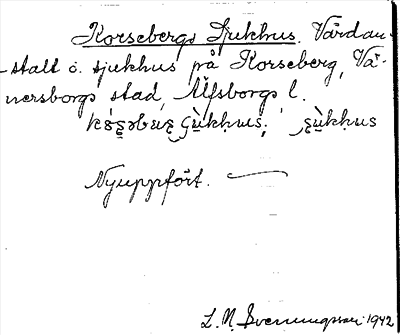 Korsebergs Sjukhus. Vårdan-
stalt o. sjukhus på Korseberg, Vä-
nersborgs stad, Älfsborgs l.
Nyuppfört.
L. M. Svenungsson 1942